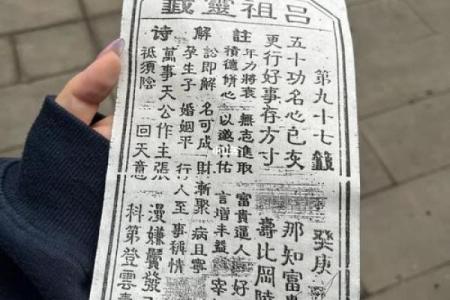 呂祖靈籤
第九十七籤 癸庚
五十功名心已灰 那知富
更行好事存方寸 壽比岡陵
註
年力將衰 無志進取 富貴逼人
積德餅心 以邀神佑 言增丰益
解
訟即解 名可成 財漸聚 病且寧
孕生子 婚姻平 行人至 事稱情
诗
萬事天公作主張 漫嫌鬢發
祗須陰 回天意 科第登雲